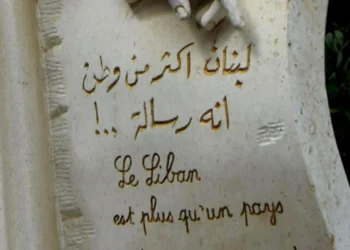 لبنان اكثر من وطن
انه رسالة ..!
Le Liban
est plus qu'un pays